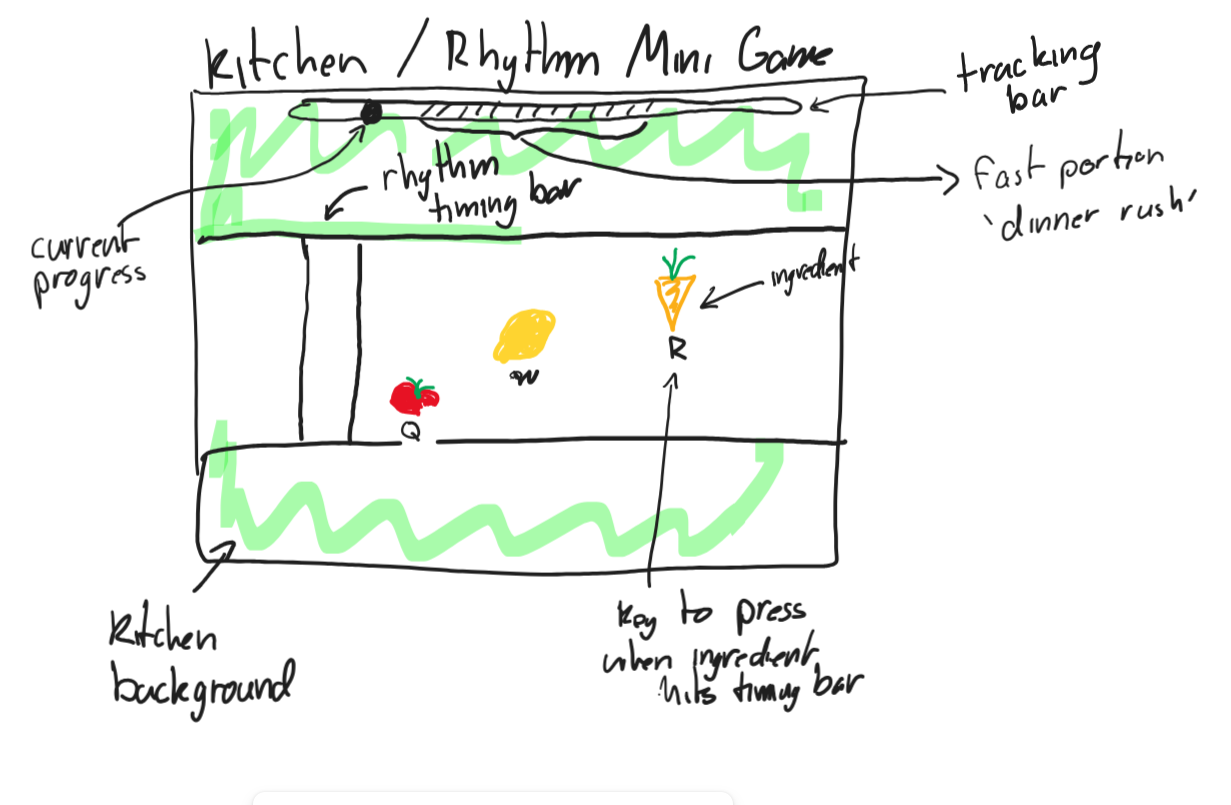 Kitchen / Rhythm Mini Game
tracking
bar
rhythm
timing bar
fast portion
'dinner rush'
current
progress
ingredient
R
W
Q
Kitchen
background
key to press
when ingredient
hits timing bar